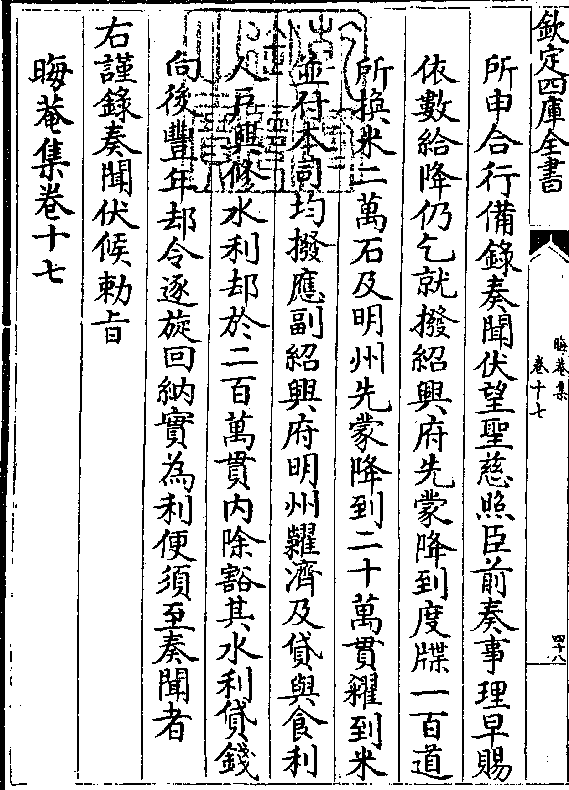 欽定四庫全書
晦菴集
卷十七
四十八
所申合行備錄奏聞伏望聖慈照臣前奏事理早賜
依數給降仍乞就撥紹興府先蒙降到度牒一百道
所換米二萬石及明州先蒙降到二十萬貫糴到米
並付本司均撥應副紹興府明州糶濟及貸與食利
人户興修水利却於二百萬貫内除豁其水利貸錢
向後豐年却令逐旋回納實為利便須至奏聞者
右謹錄奏聞伏候勅㫖
晦菴集卷十七